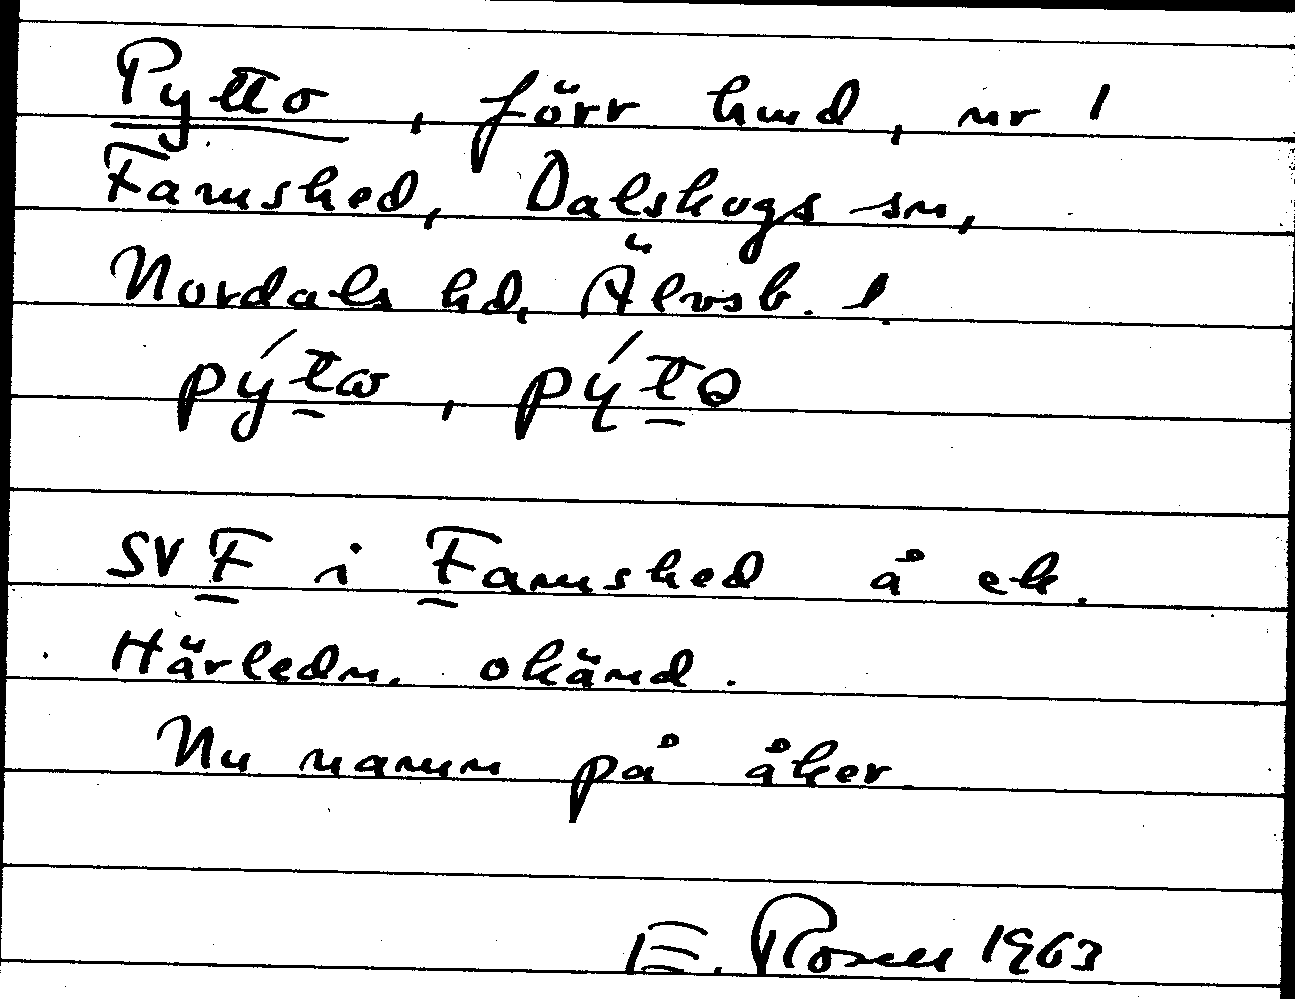 Pytto, förr hmd, nr 1
Famshed, Dalskogs sn,
Nordals hd, Älvsb. l.
pýtω, pýto
SVF i Famshed å ek.
Härledn. okänd.
Nu namn på åker
E. Rosell 1963